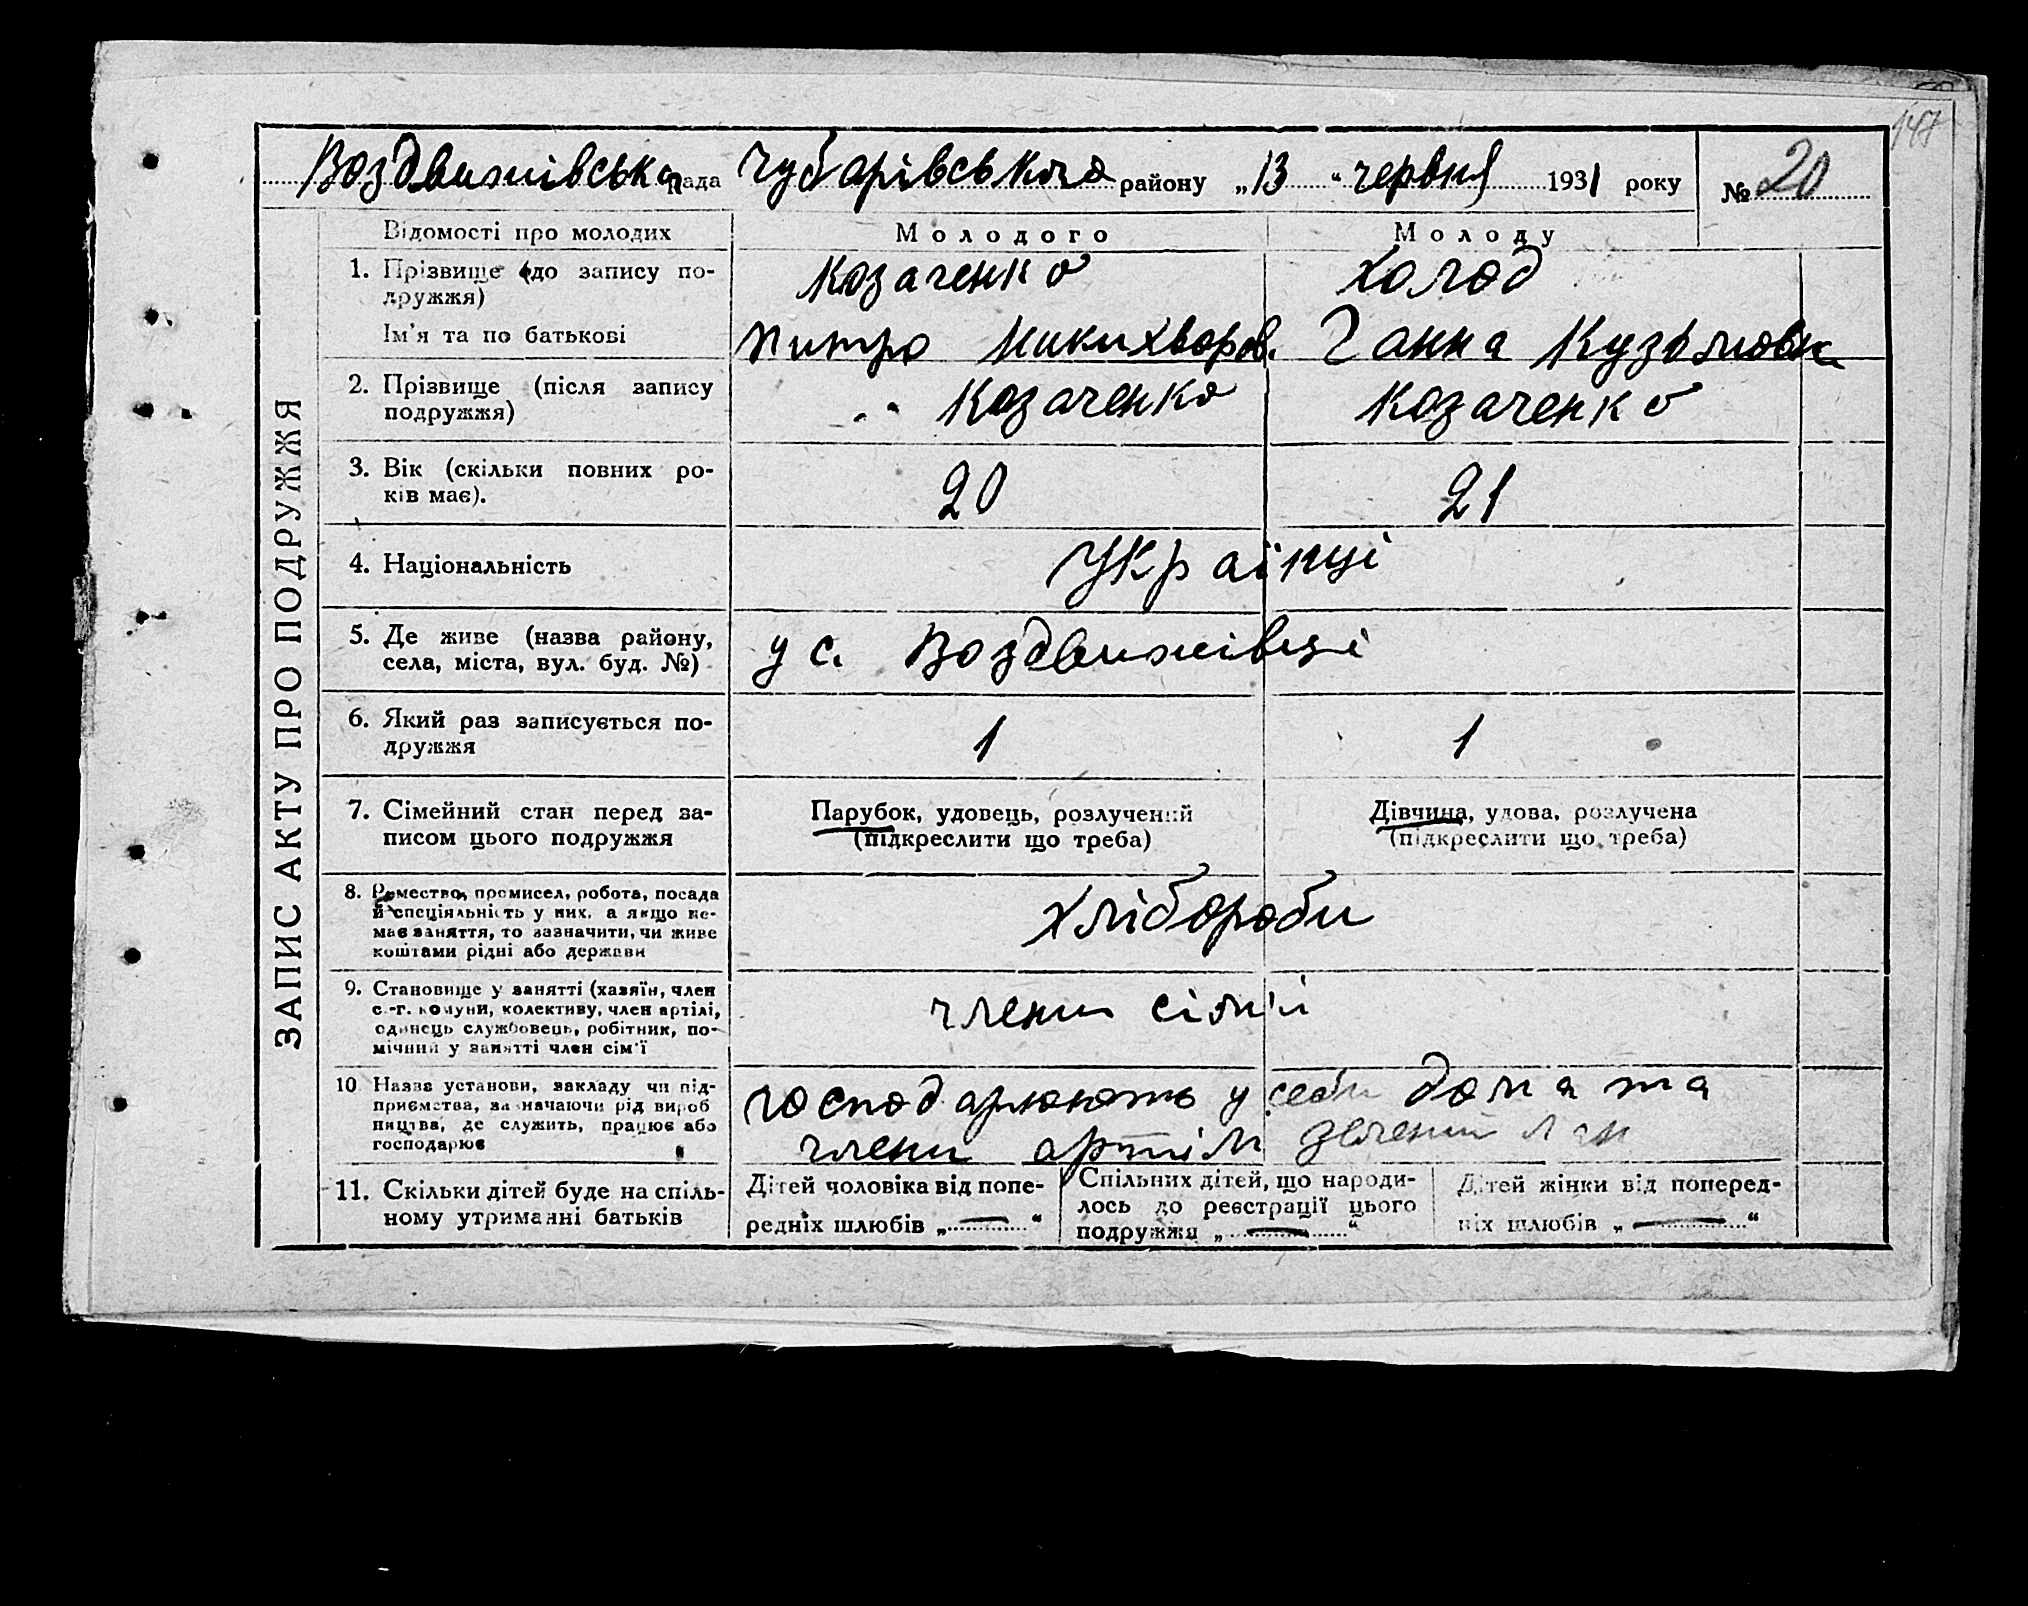 147
Воздвижівська рада Чубарівського району „13“ червня 1931 року № 20
ЗАПИС АКТУ ПРО ПОДРУЖЖЯ
Відомості про молодих Молодого Молоду
1. Прізвище (до запису по-
дружжя)
Козаченко Холод
Ім'я та по батькові Питро Микихворов. Ганна Кузьмовн
2. Прізвище (після запису
подружжя)
Козаченко Козаченко
3. Вік (скільки повних ро-
ків має).
20 21
4. Національність Українці
5. Де живе (назва району,
села, міста, вул. буд. №)
у с. Воздвижівці
6. Який раз записується по-
дружжя
1 1
7. Сімейний стан перед за-
писом цього подружжя
Парубок, удовець, розлучений
(підкреслити що треба)
Дівчина, удова, розлучена
(підкреслити що треба)
8. Ремество, промисел, робота, посада
й спеціяльність у них, а якщо не-
має заняття, то зазначити, чи живе
коштами рідні або держави
Хлібороби
9. Становище у занятті (хазяїн, член
с.-г. комуни, колективу, член артілі,
одинець службовець, робітник, по-
мічний у занятті член сім'ї
члени сім'ї
10 Назва установи, закладу чи під-
приємства, зазначаючи рід вироб
ництва, де служить, працює або
господарює
господарюють у себе дома та
члени артіли зелений лан
11. Скільки дітей буде на спіль-
ному утриманні батьків
Дітей чоловіка від попе-
редніх шлюбів „ — “
Спільних дітей, що народи-
лось до реєстрації цього
подружжя „ — “
Дітей жінки від поперед-
ніх шлюбів „ — “